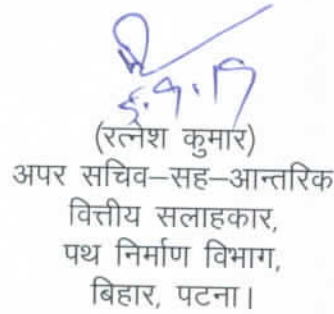 5.9.19
(रत्नेश कुमार)
अपर सचिव–सह–आन्तरिक
वित्तीय सलाहकार,
पथ निर्माण विभाग,
बिहार, पटना।